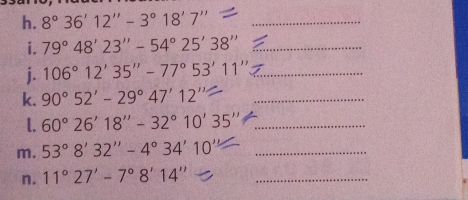 h. 8° 36′ 12′′ – 3° 18′ 7′′ =
i. 79° 48′ 23′′ – 54° 25′ 38′′ =
j. 106° 12′ 35′′ – 77° 53′ 11′′ =
k. 90° 52′ – 29° 47′ 12′′ =
l. 60° 26′ 18′′ – 32° 10′ 35′′ =
m. 53° 8′ 32′′ – 4° 34′ 10′′ =
n. 11° 27′ – 7° 8′ 14′′ =